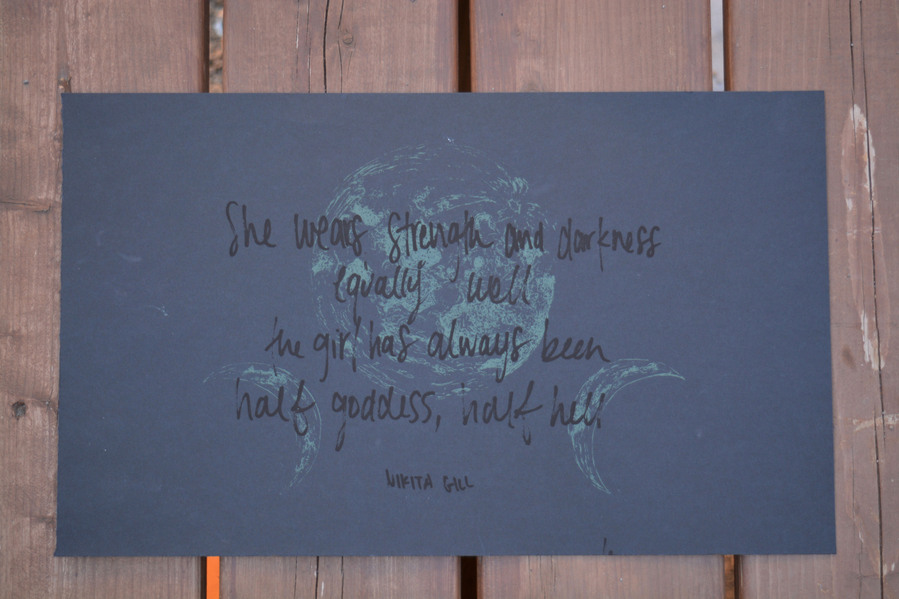 She wears strength and darkness
equally well
the girl has always been
half goddess, half hell
NIKITA GILL